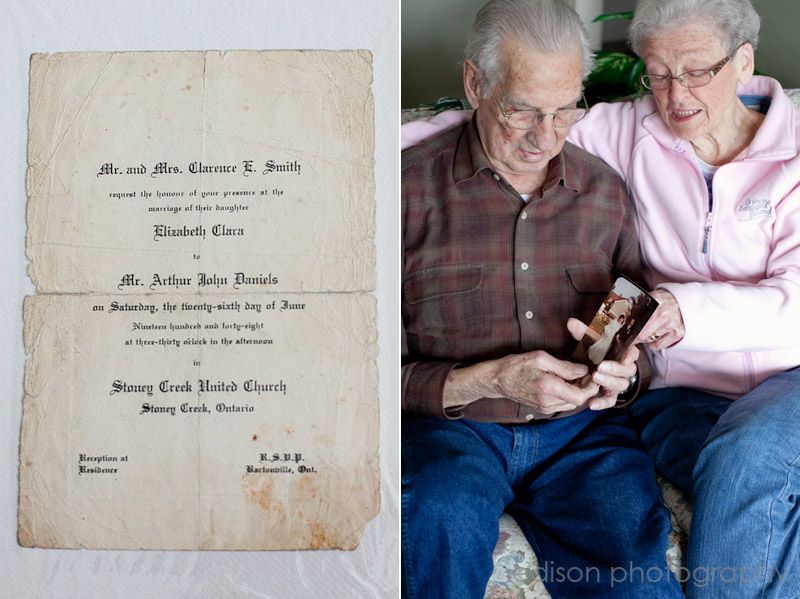 Mr. and Mrs. Clarence E. Smith
request the honour of your presence at the
marriage of their daughter
Elizabeth Clara
to
Mr. Arthur John Daniels
on Saturday, the twenty-sixth day of June
Nineteen hundred and forty-eight
at three-thirty o'clock in the afternoon
in
Stoney Creek United Church
Stoney Creek, Ontario
Reception at
Residence
R.S.V.P.
Bartonville, Ont.
Prince
Edward
Island
edison photography